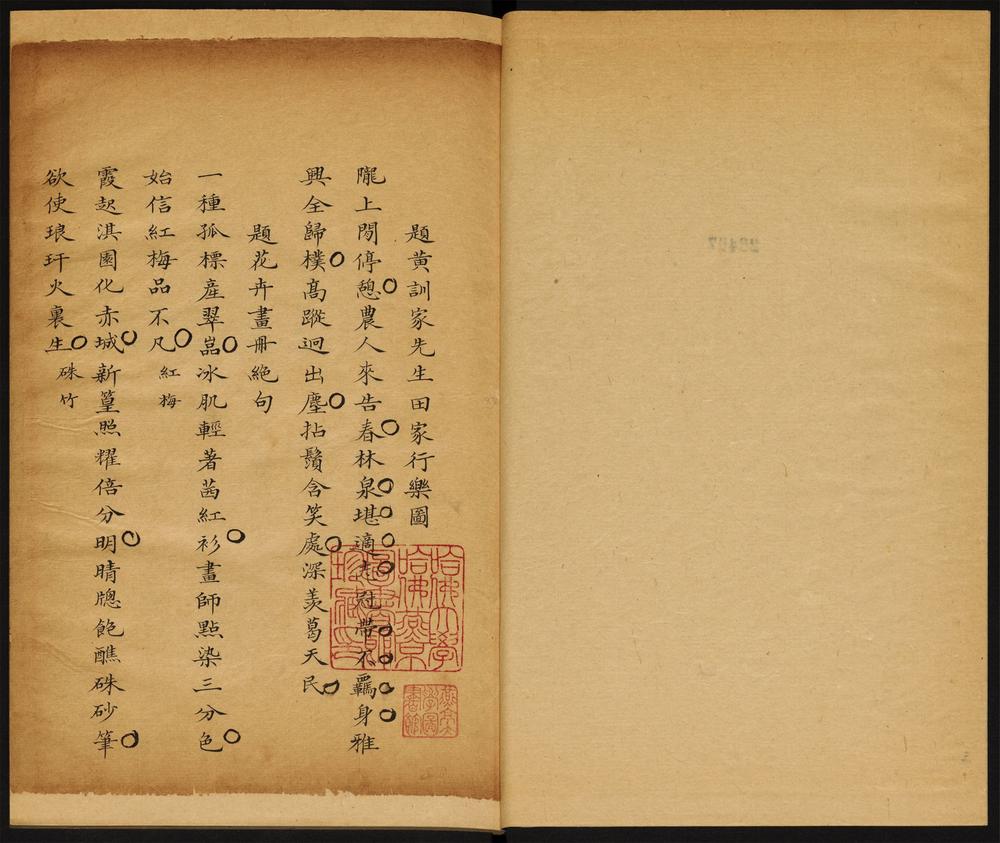 題黃訓家先生田家行樂圖
隴上閒停憩農人來告春林泉堪適志冠帶不羈身雅
興全歸樸高蹤迥出塵拈鬚含笑處深羡葛天民
題花卉畫冊絕句
一種孤標產翠嵓冰肌輕著茜紅衫畫師點染三分色
始信紅梅品不凡 紅梅
霞起淇園化赤城新篁照耀倍分明晴牕飽蘸硃砂筆
欲使琅玕火裏生 硃竹
哈佛大學
哈佛燕京
圖書館
珍藏印